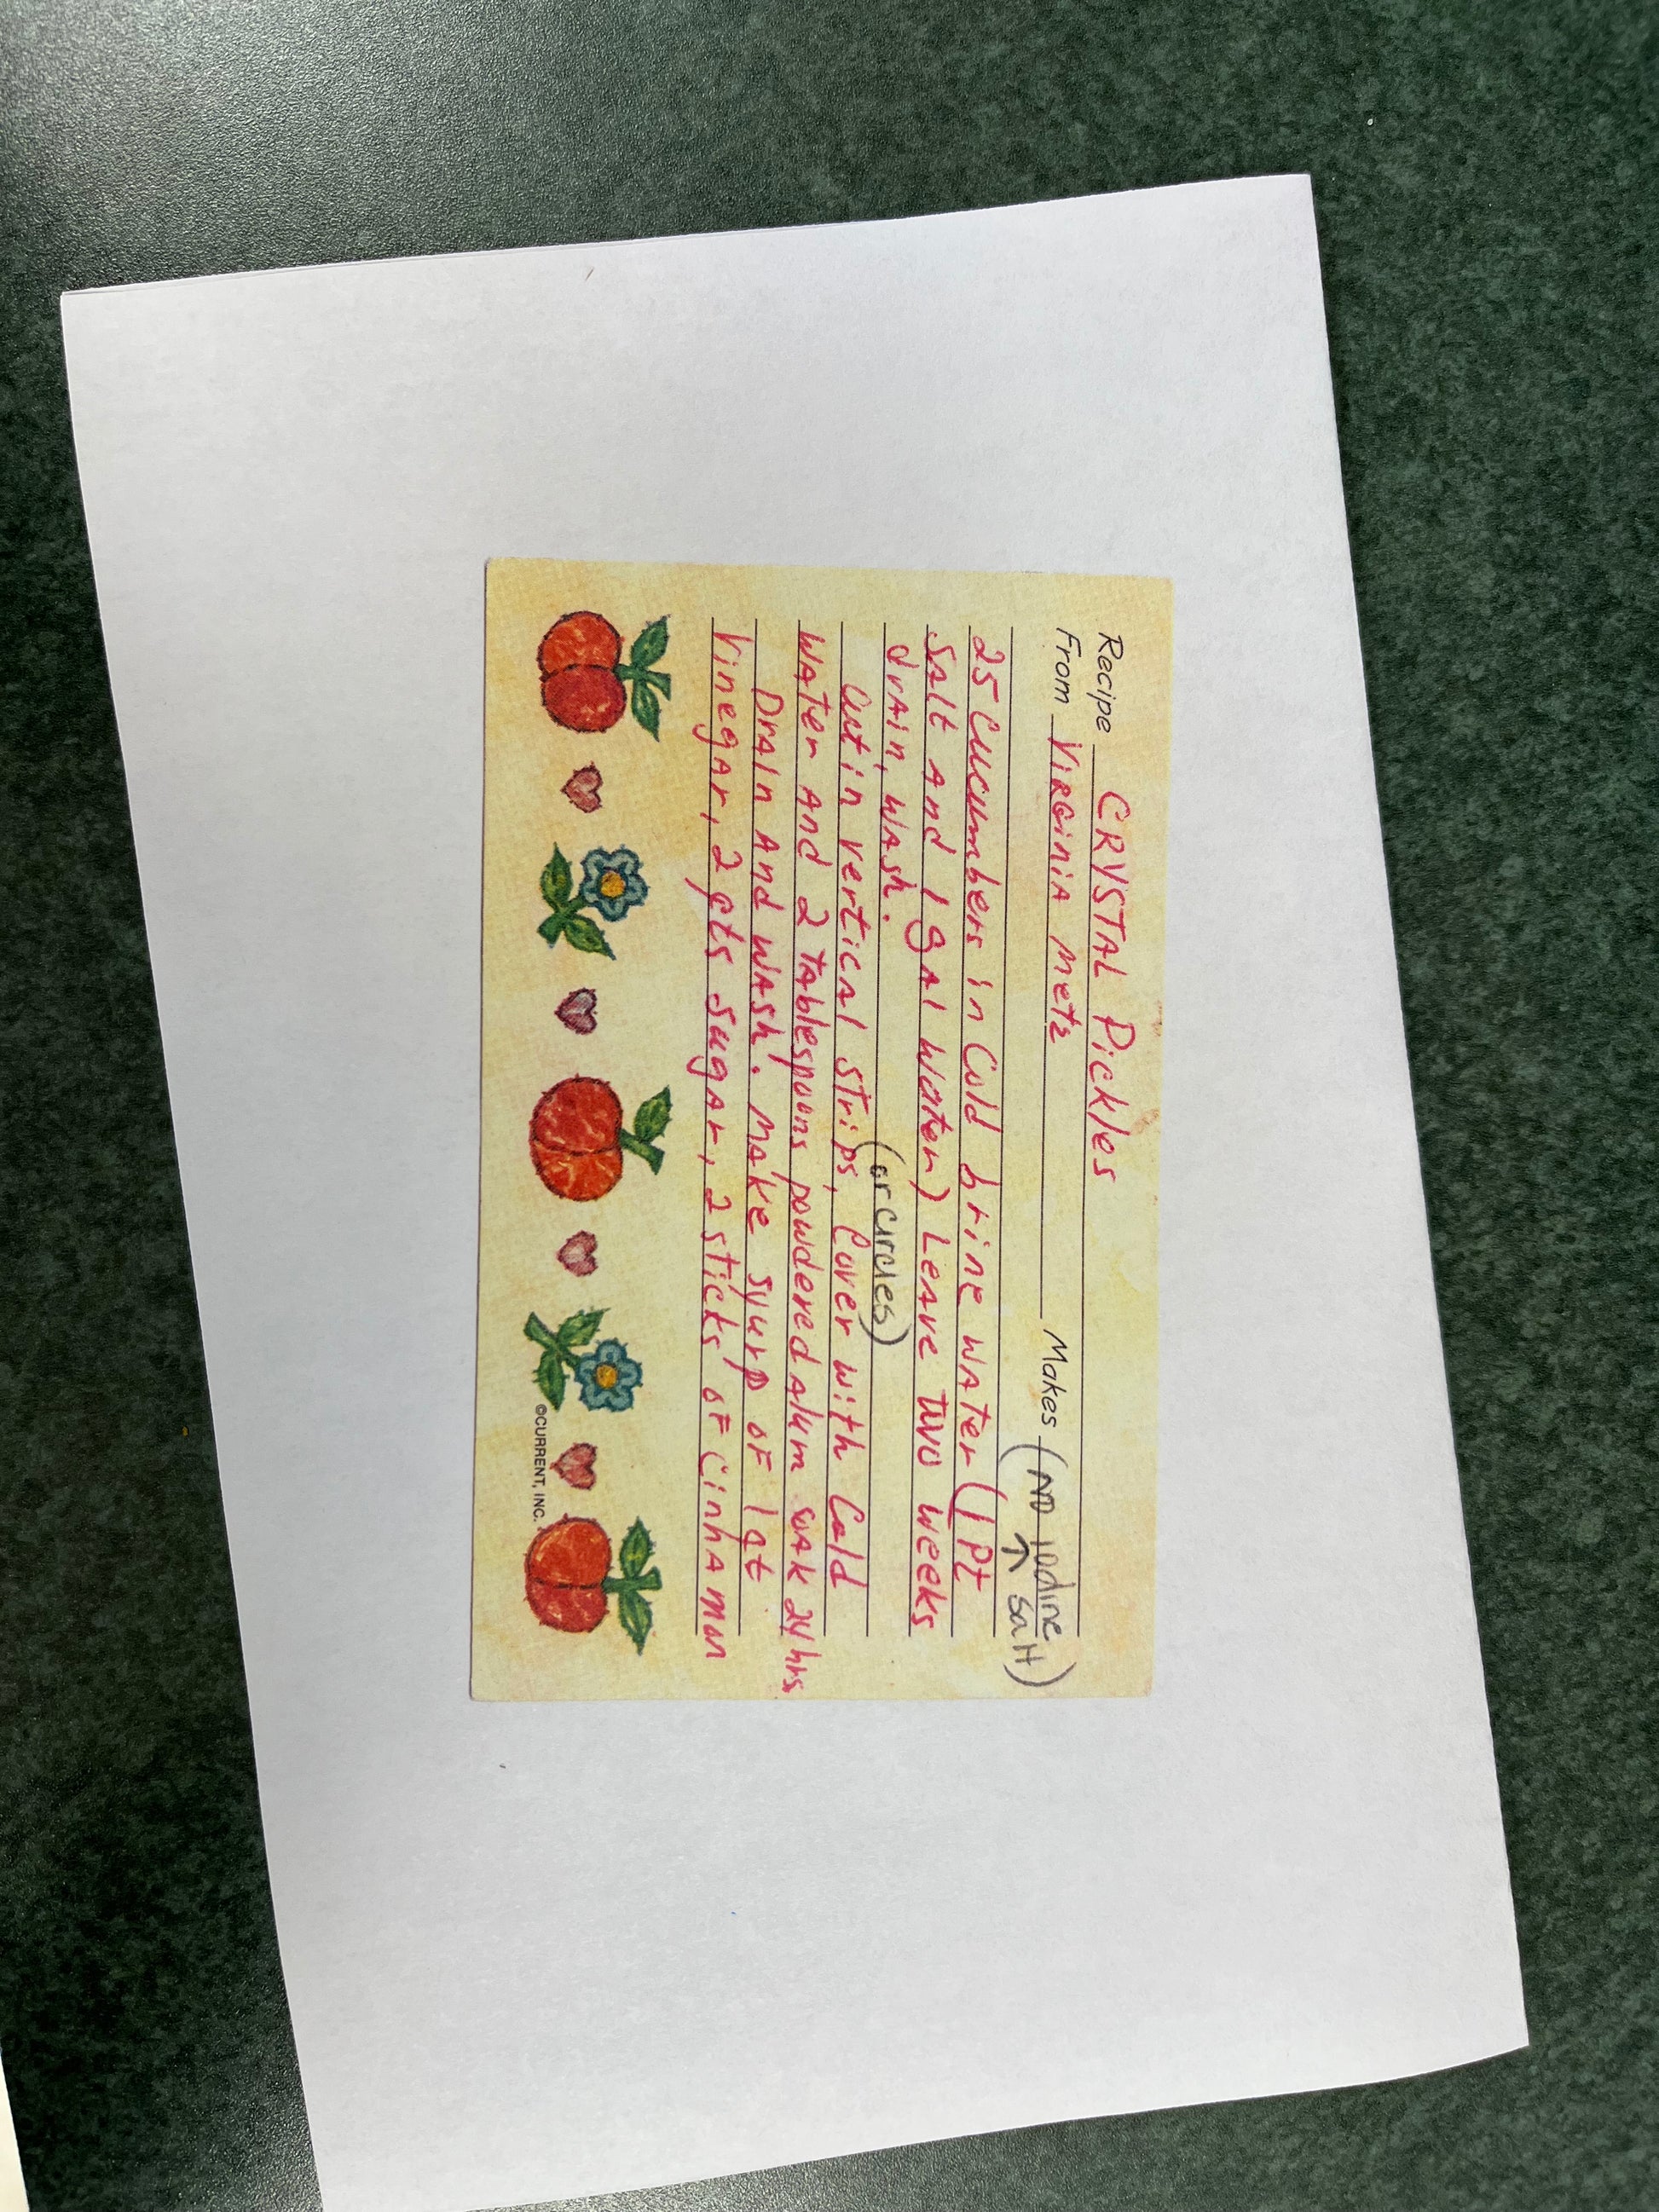 Recipe CRYSTAL Pickles
From VIRGiniA Metz Makes (NO iodine
↑ salt)
25 Cucumbers in Cold brine water (1 Pt
Salt And 1 gAl Water) LeAve TWO weeks
drAin, wAsh.
(or circles)
Cut in verticAl strips, Cover with Cold
WAter And 2 TAblespoons powdered Alum soAk 24 hrs.
DrAin And wAsh. MAke syurp oF 1 qt
Vinegar, 2 pts SugAr, 2 sticks oF CinnAmon
©CURRENT, INC.